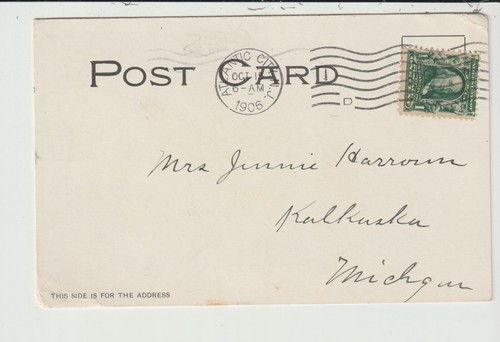 POST CARD
ATLANTIC CITY, N.J.
OCT 1
6-AM
1906
D
Mrs Jennie Harroun
Kalkaska
Michgan
THIS SIDE IS FOR THE ADDRESS